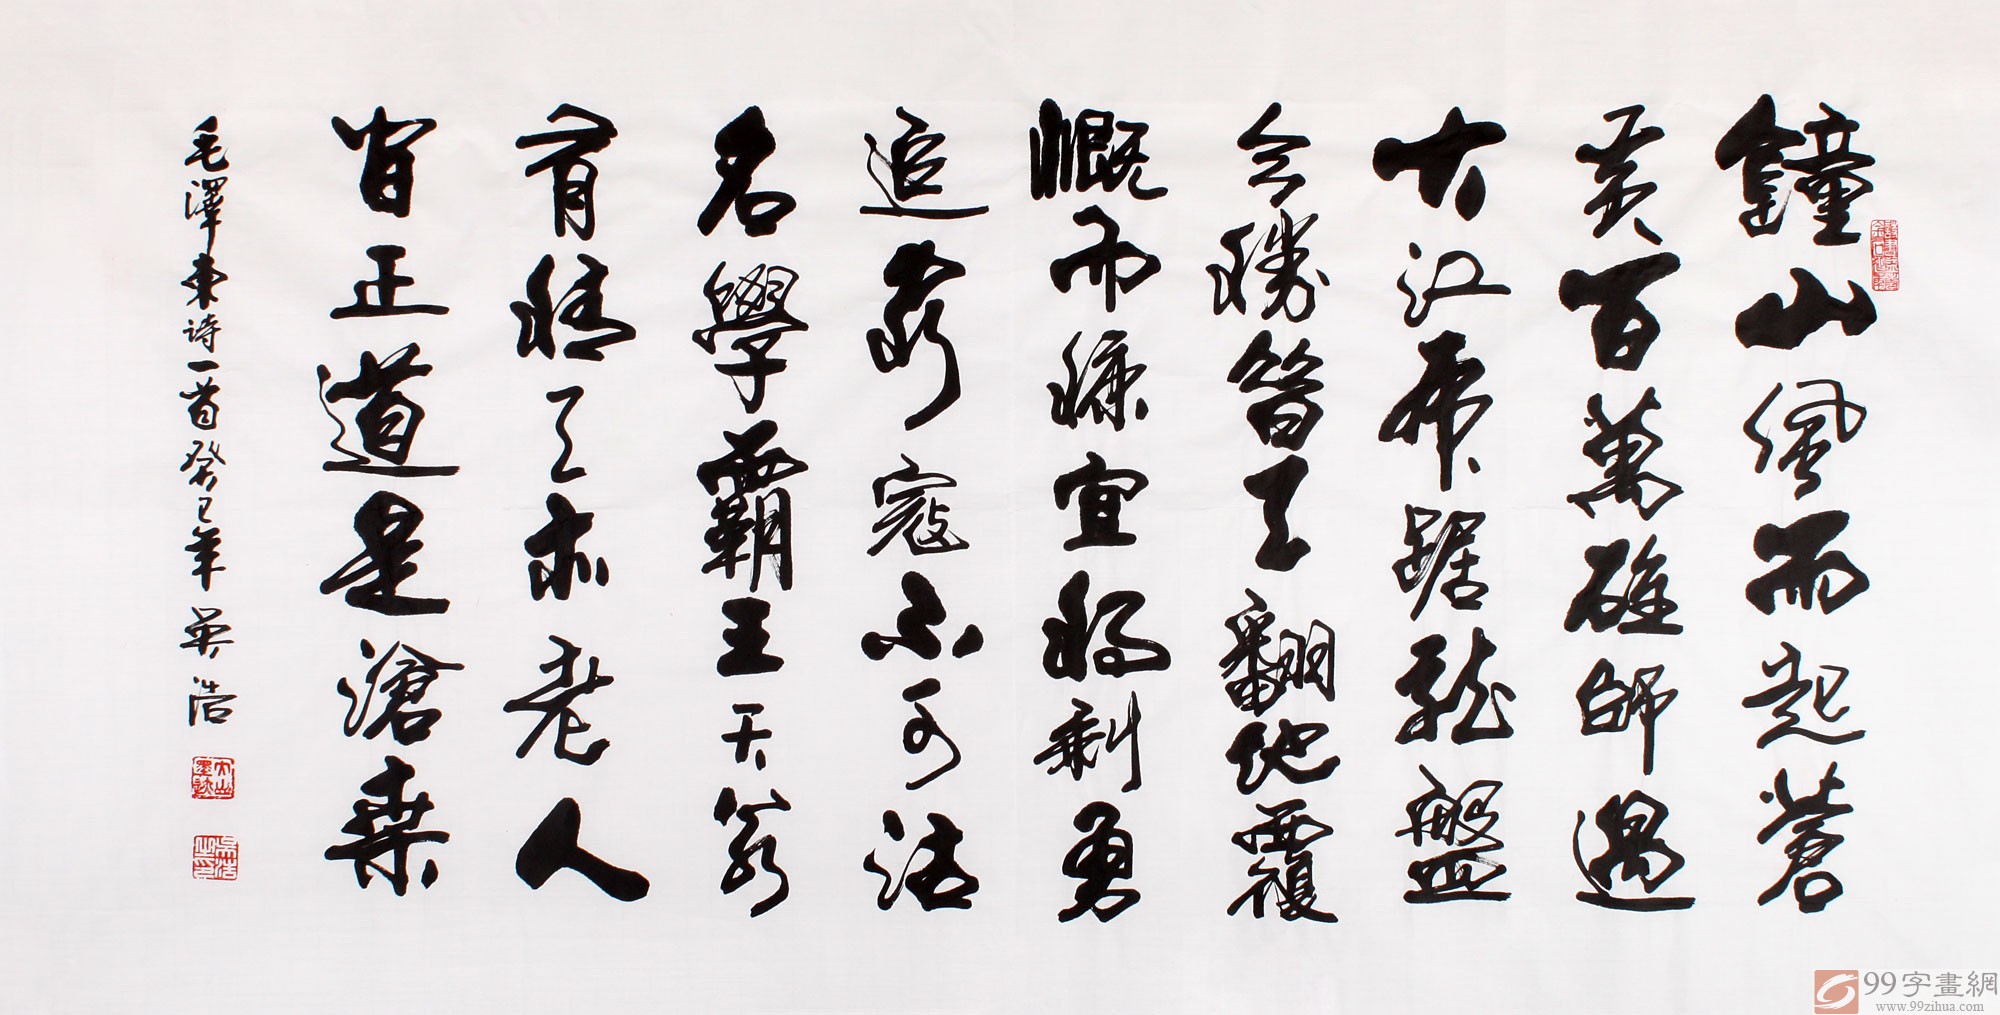 鐘山風雨起蒼
黄百萬雄師過
大江虎踞龍盤
今勝昔天翻地覆
慨而慷宜將剩勇
追窮寇不可沽
名學霸王天若
有情天亦老人
間正道是滄桑
毛澤東诗一首癸巳年吴浩
吴浩之印
99字畫網
www.99zihua.com